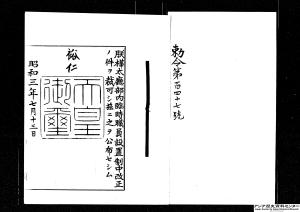 勅令第百四十七號
朕樺太廳部內臨時職員設置制中改正
ノ件ヲ裁可シ茲ニ之ヲ公布セシム
裕仁
天皇御璽
昭和三年七月十三日
アジア歴史資料センター